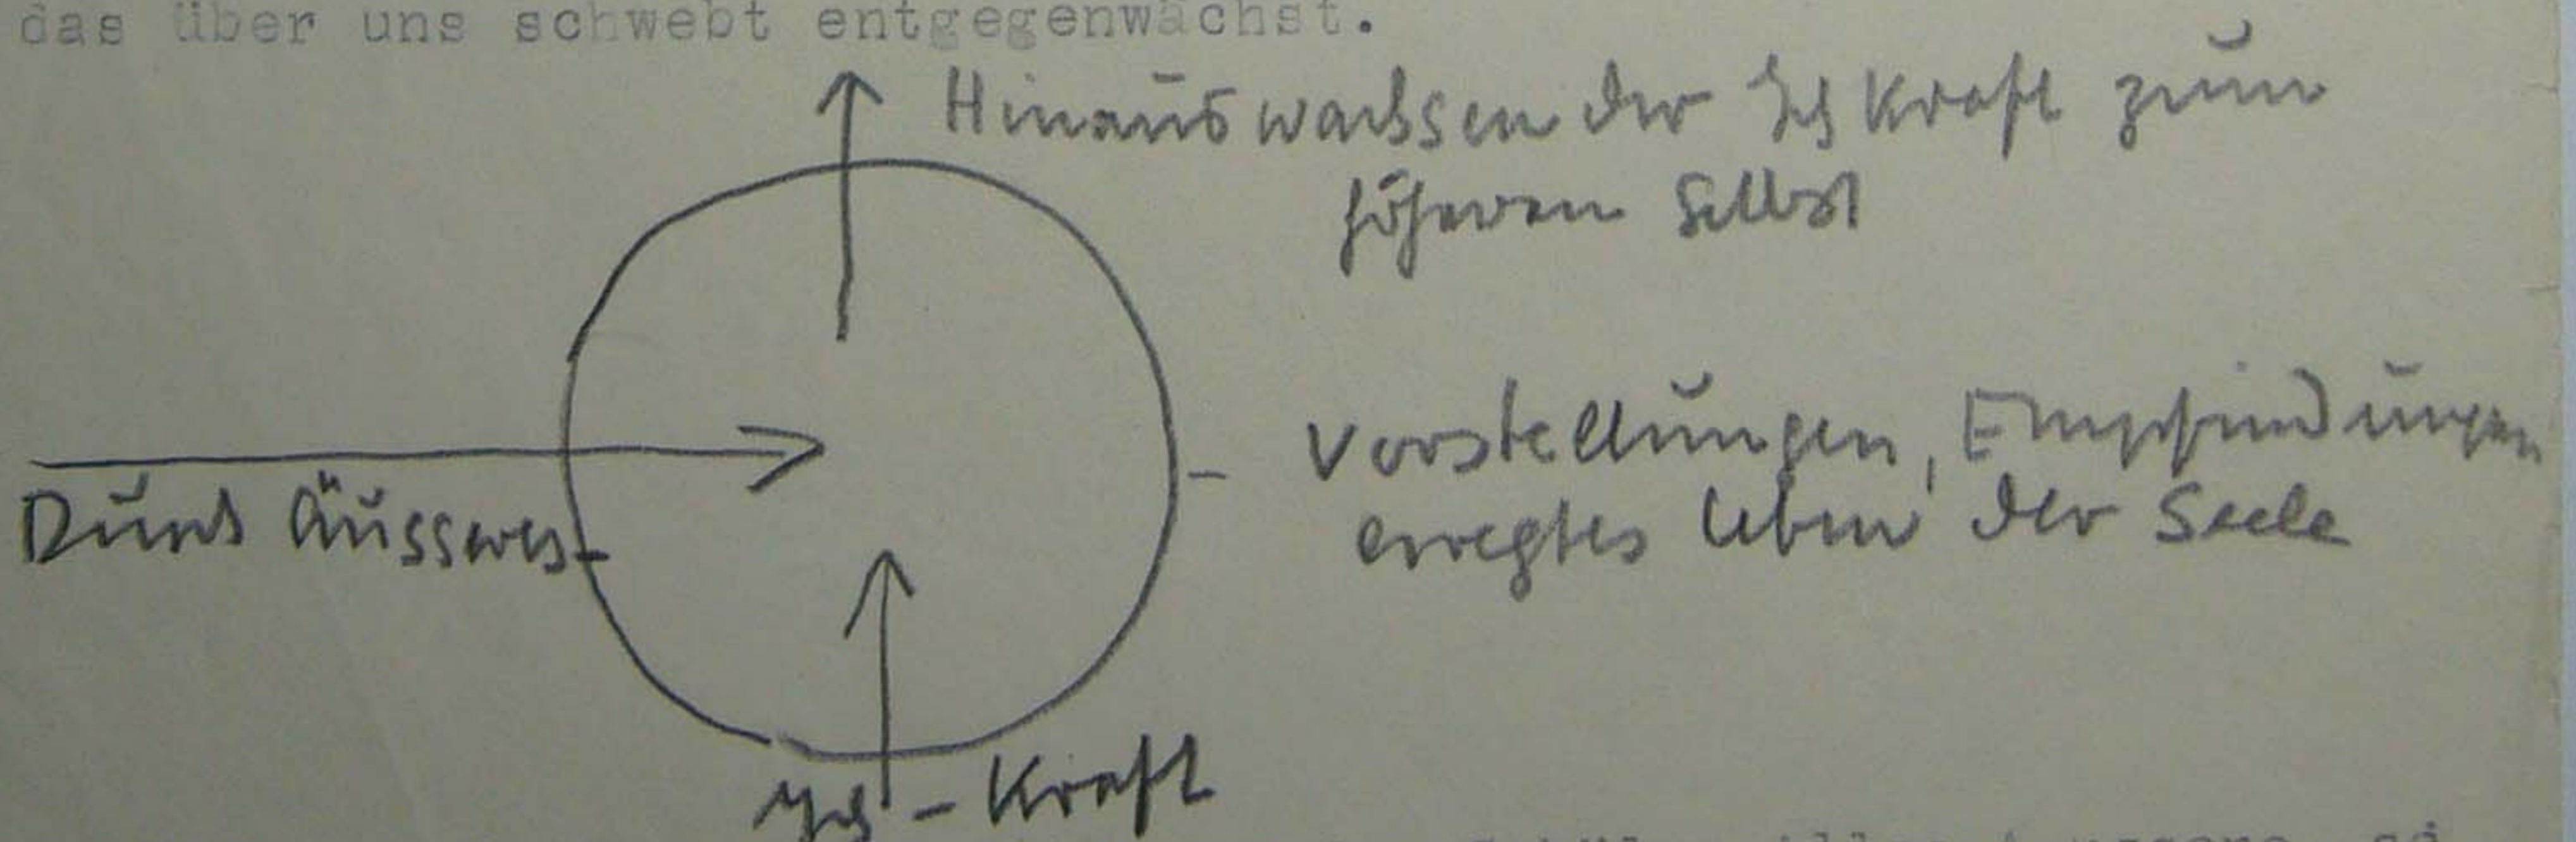 das über uns schwebt entgegenwächst.
Hinauswachsen der Ich Kraft zum
höheren Selbst
Vorstellungen, Empfindungen
erregtes Leben der Seele
Durch Äusseres
Ich-Kraft